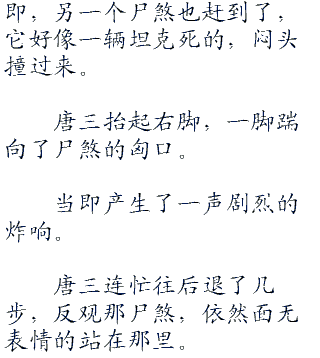 即，另一个尸煞也赶到了，
它好像一辆坦克死的，闷头
撞过来。
唐三抬起右脚，一脚踹
向了尸煞的匈口。
当即产生了一声剧烈的
炸响。
唐三连忙往后退了几
步，反观那尸煞，依然面无
表情的站在那里。